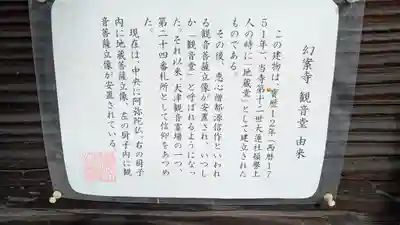 幻宴寺 観音堂 由来
この建物は、宝暦12年(西暦17
51年)、当寺第十二世大蓮社極誉上
人の時に「地蔵堂」として建立された
ものである。
その後、恵心僧都源信作といわれ
る観音菩薩立像が安置され、いつし
か「観音堂」と呼ばれるようになっ
た。それ以来、大津観音霊場の一つ、
第二十四番札所として信仰をあつめ
た。
現在は、中央に阿弥陀仏、右の厨子
内に地蔵菩薩立像、左の厨子内に観
音菩薩立像が安置されている。